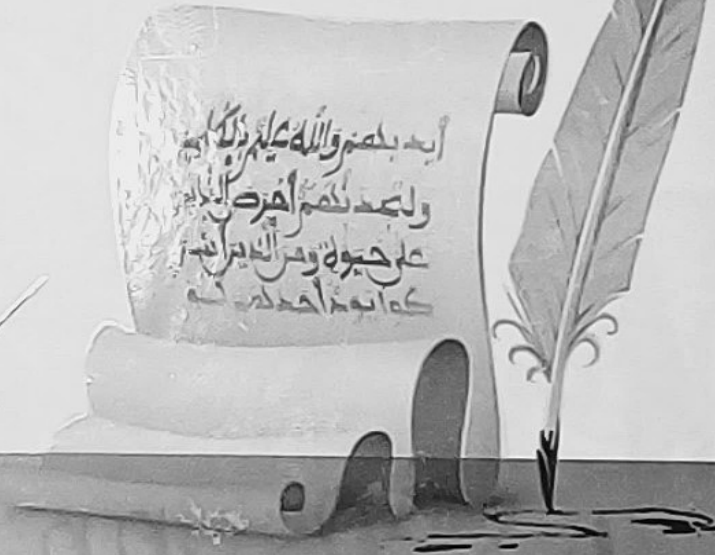 أيديهم والله عليم بالظا
ولتجدنهم أحرص النا
على حيوة ومن الذين أشر
كوا يود أحدهم لو